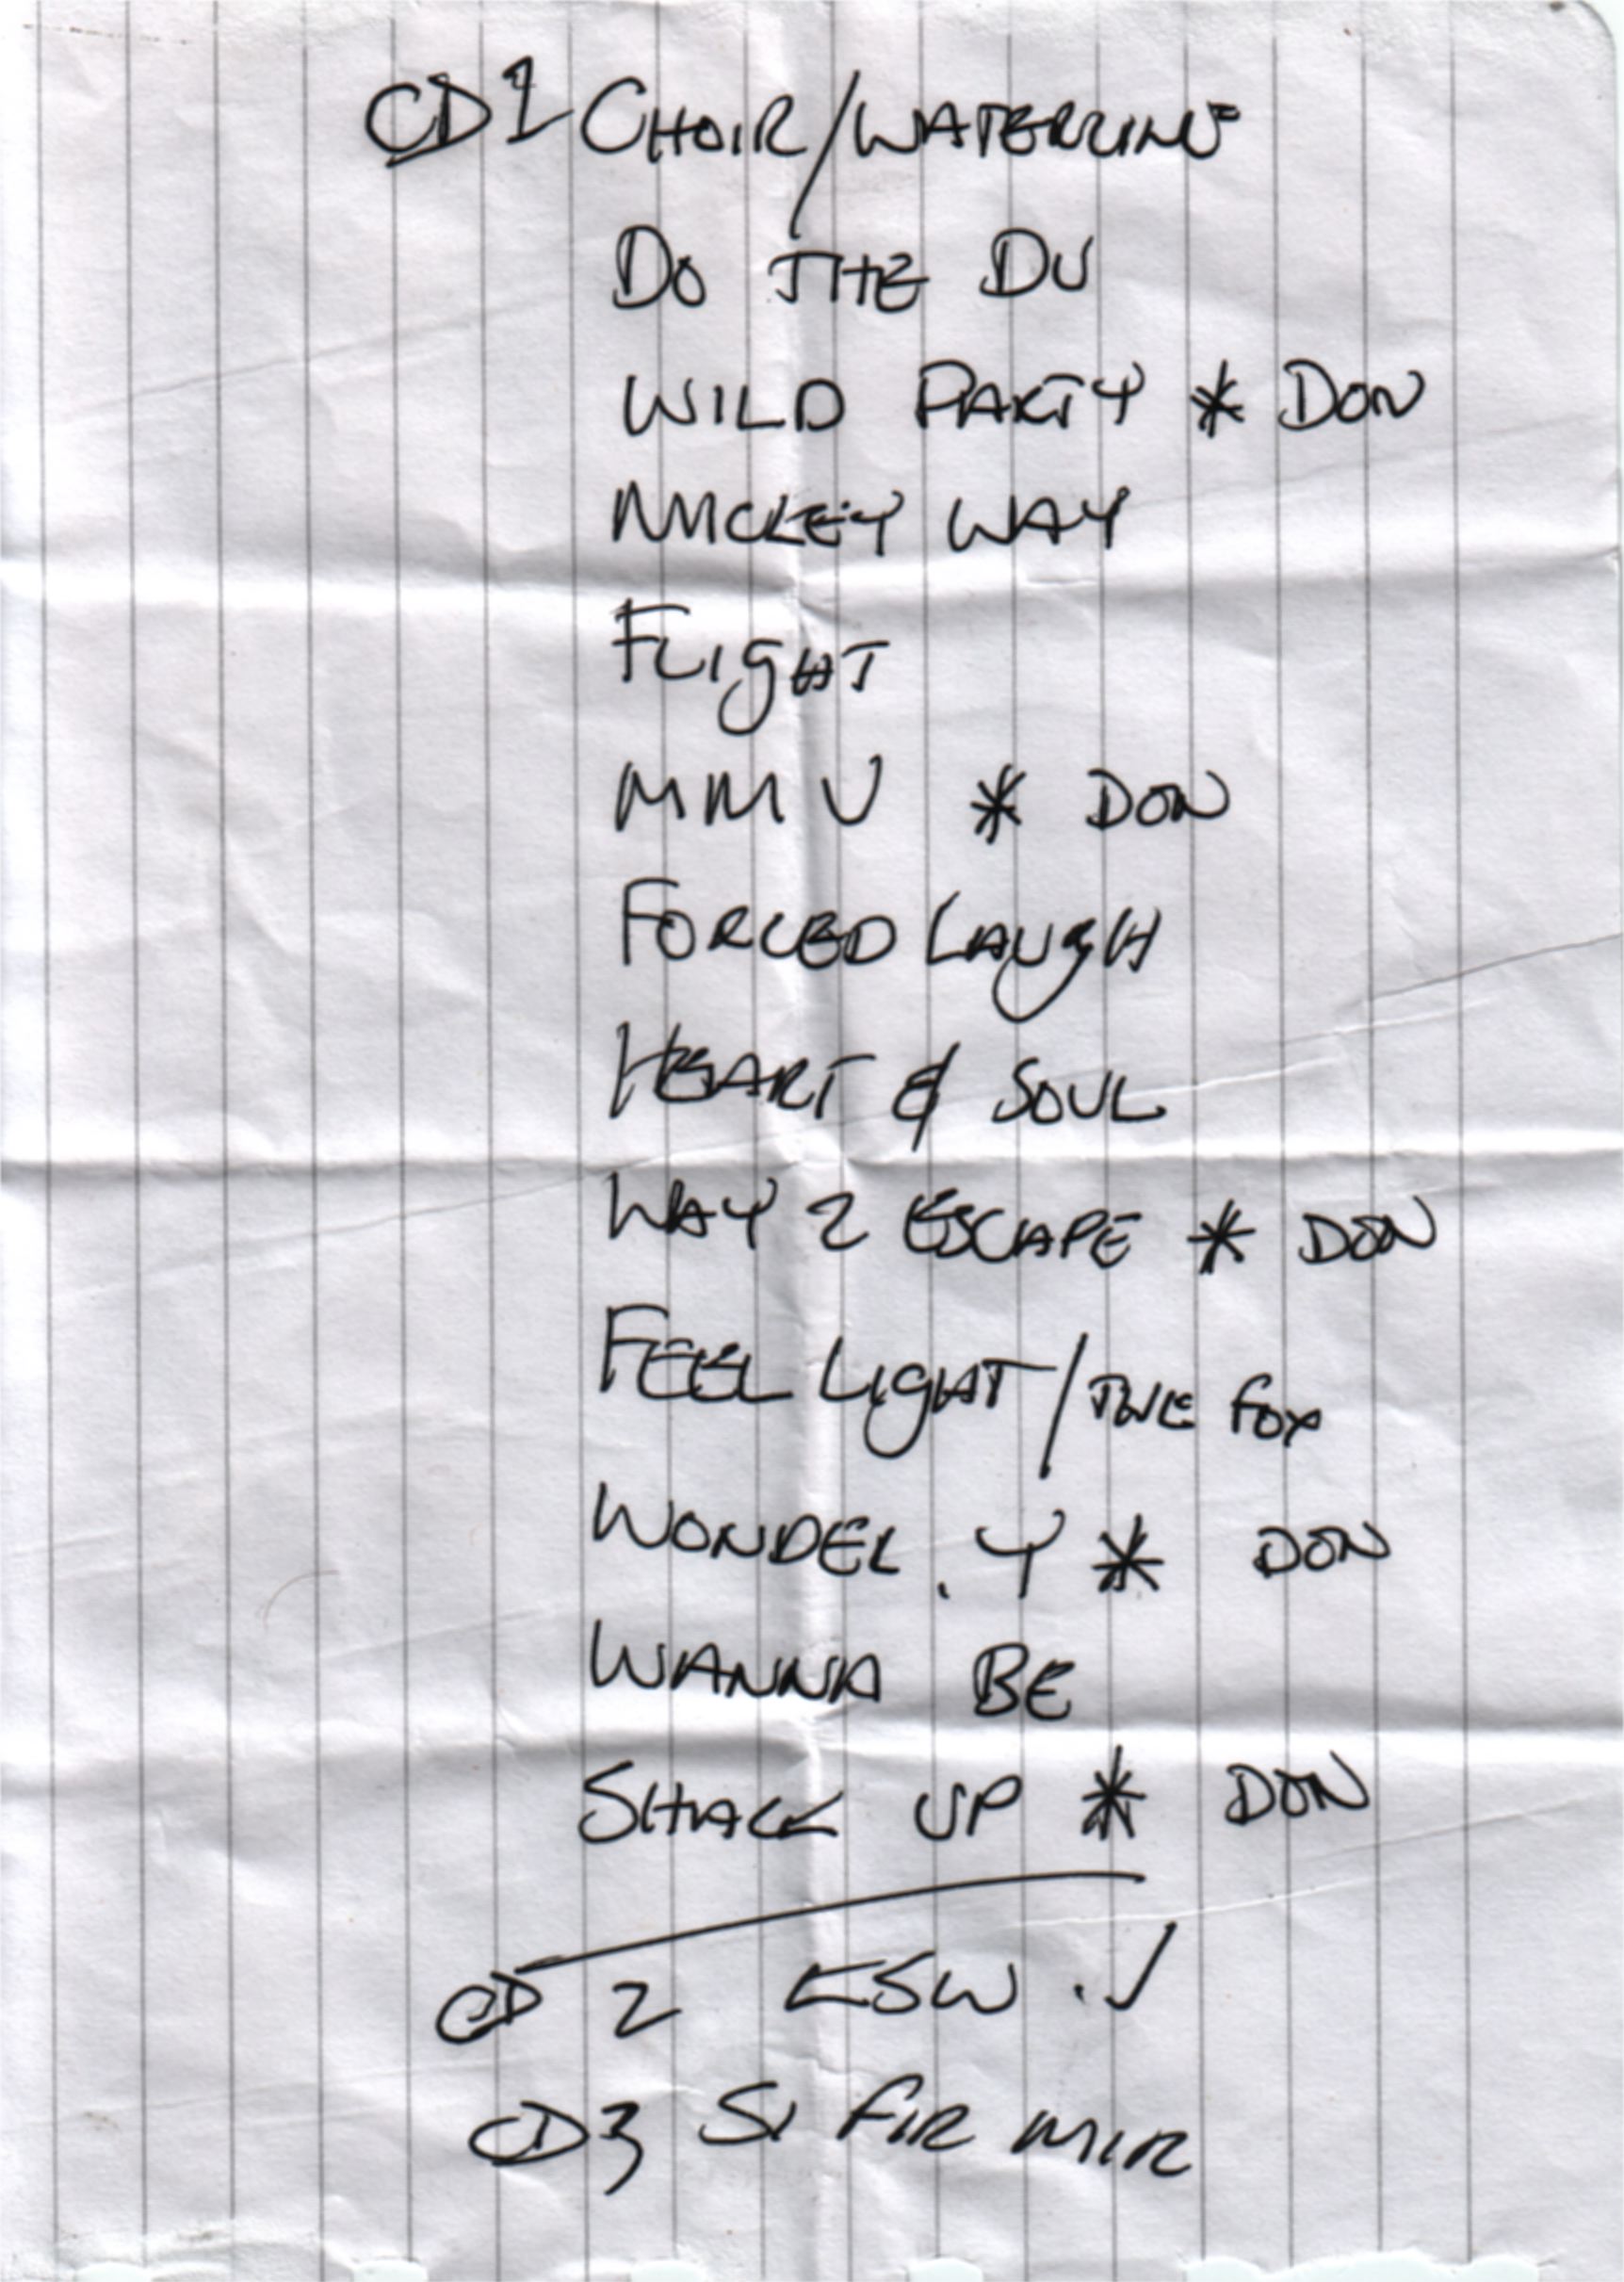 CD1 CHOIR/WATERLINE
DO THE DU
WILD PARTY * DON
MICKEY WAY
FLIGHT
MMU * DON
FORCED LAUGH
HEART & SOUL
WAY 2 ESCAPE * DON
FEEL LIGHT/THE FOX
WONDER.Y * DON
WANNA BE
SHACK UP * DON
CD 2 ESW.J
CD3 SI FIR MIR